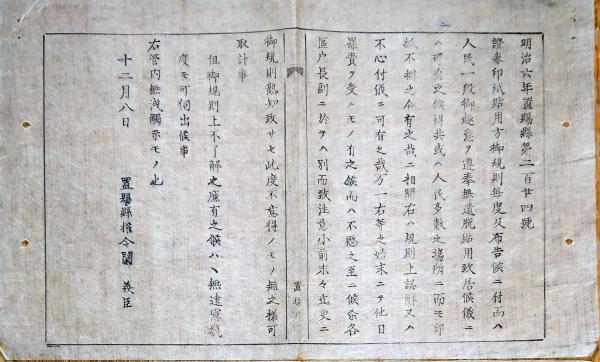 明治六年置賜縣第二百廿四號
證券印紙貼用方御規則每度及布告候ニ付而ハ
人民一般御趣意ヲ遵奉無遺脱貼用致居候儀ニ
ハ可有之候得共或ハ人民多數之場所ニ而モ印
紙不捌之介有之哉ニ相聞右ハ規則上誤解又ハ
不心付儀ニ可有之哉万一右等之始末ニテ他日
罪責ヲ受ルモノ有之候而ハ不愍之至ニ候条各
區戸長副ニ於テハ別而致注意小前末々迄更ニ
御規則熟知致サセ此度不意得ノモノ無之様可
取計事
但御規則上不了解之廉有之候ハヽ無遠慮幾
度モ可伺出候事
右管内無洩觸示モノ也
十二月八日
置賜縣権令關 義臣